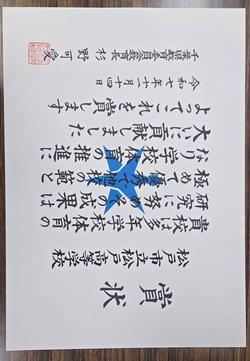 賞状
松戸市立松戸高等学校
貴校は多年学校体育の
研究に努めその成果は
極めて優秀で他校の範と
なり学校体育の推進に
大いに貢献しました
よってこれを賞します
令和七年十一月十四日
千葉県教育委員会教育長 杉野可愛